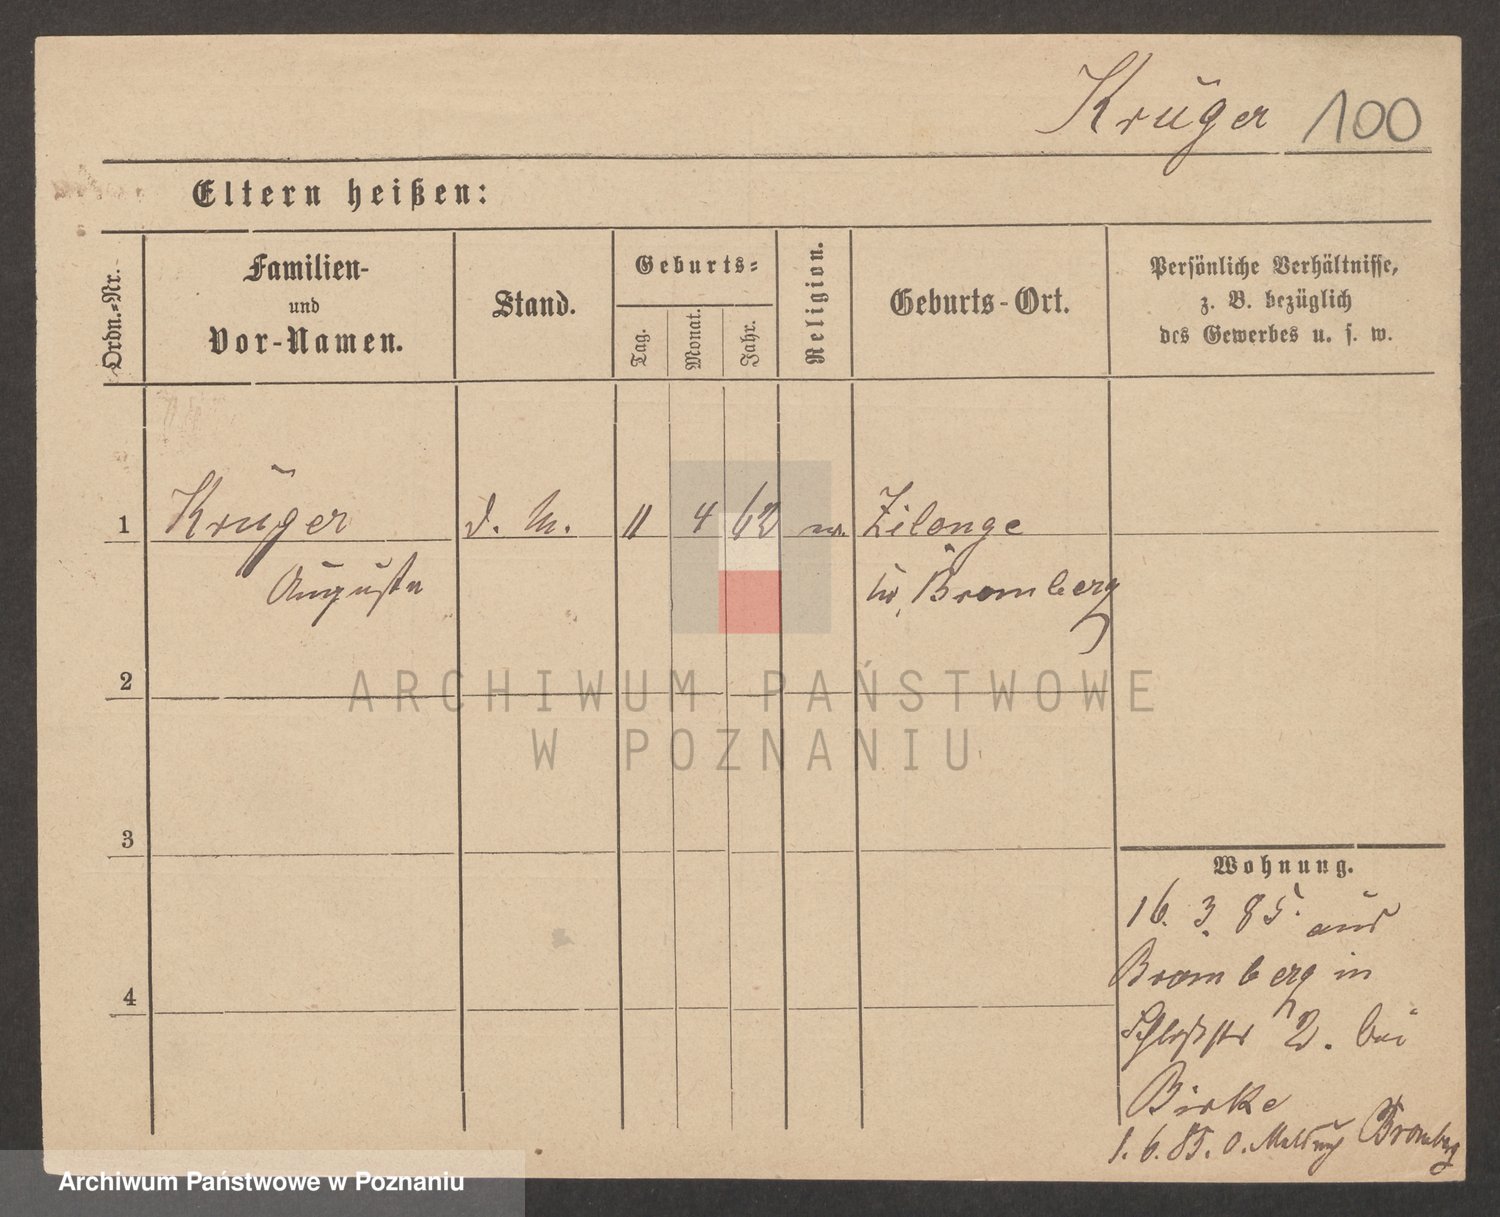 Krüger 100
Eltern heißen:
Ordn.-Nr.
Familien-
und
Vor-Namen.
Stand.
Geburts-
Tag.
Monat.
Jahr.
Religion.
Geburts-Ort.
Persönliche Verhältnisse,
z. B. bezüglich
des Gewerbes u. s. w.
1 Krüger d. M. 11 4 62 ev. Zilonge
Auguste Kr. Bromberg
2
ARCHIWUM PAŃSTWOWE
W POZNANIU
3
Wohnung.
16. 3. 85. aus
Bromberg in
4
Schloßstr 2. bei
Birke
1. 6. 85. o. Meldung Bromberg
Archiwum Państwowe w Poznaniu